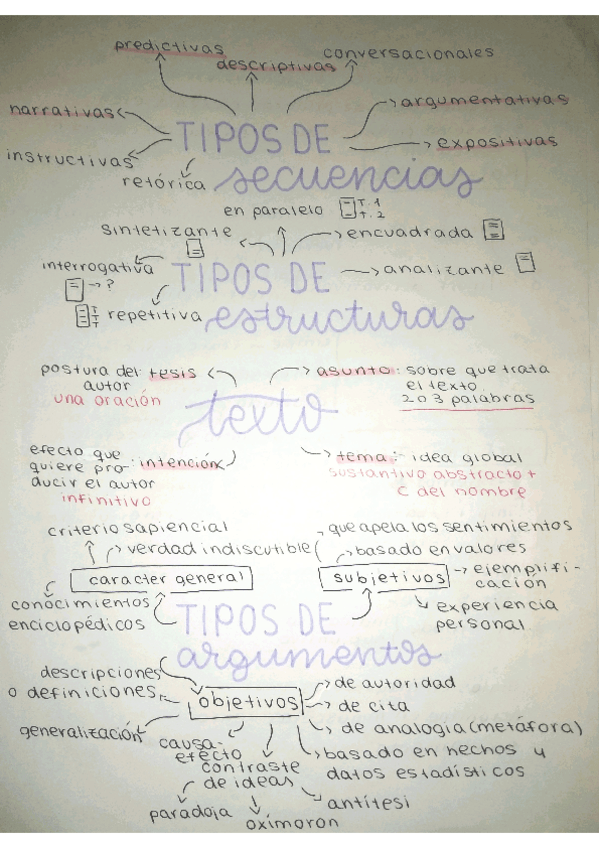 predictivas
descriptivas
conversacionales
narrativas
argumentativas
TIPOS DE
expositivas
instructivas
retórica
secuencias
en paralelo
T.1
T.2
sintetizante
encuadrada
interrogativa
TIPOS DE
analizante
?
T
T
repetitiva
estructuras
postura del tesis
autor
una oración
asunto: sobre que trata
el texto
2 o 3 palabras
texto
efecto que
quiere pro- : intención
ducir el autor
infinitivo
tema: idea global
sustantivo abstracto +
C del nombre
criterio sapiencial
verdad indiscutible
que apela los sentimientos
basado en valores
caracter general
subjetivos
ejemplifi-
cación
conocimientos
enciclopédicos
experiencia
personal
TIPOS DE
argumentos
descripciones
o definiciones
objetivos
de autoridad
de cita
generalización
de analogía (metáfora)
causa-
efecto
basado en hechos y
datos estadísticos
contraste
de ideas
paradoja
oxímoron
antítesi